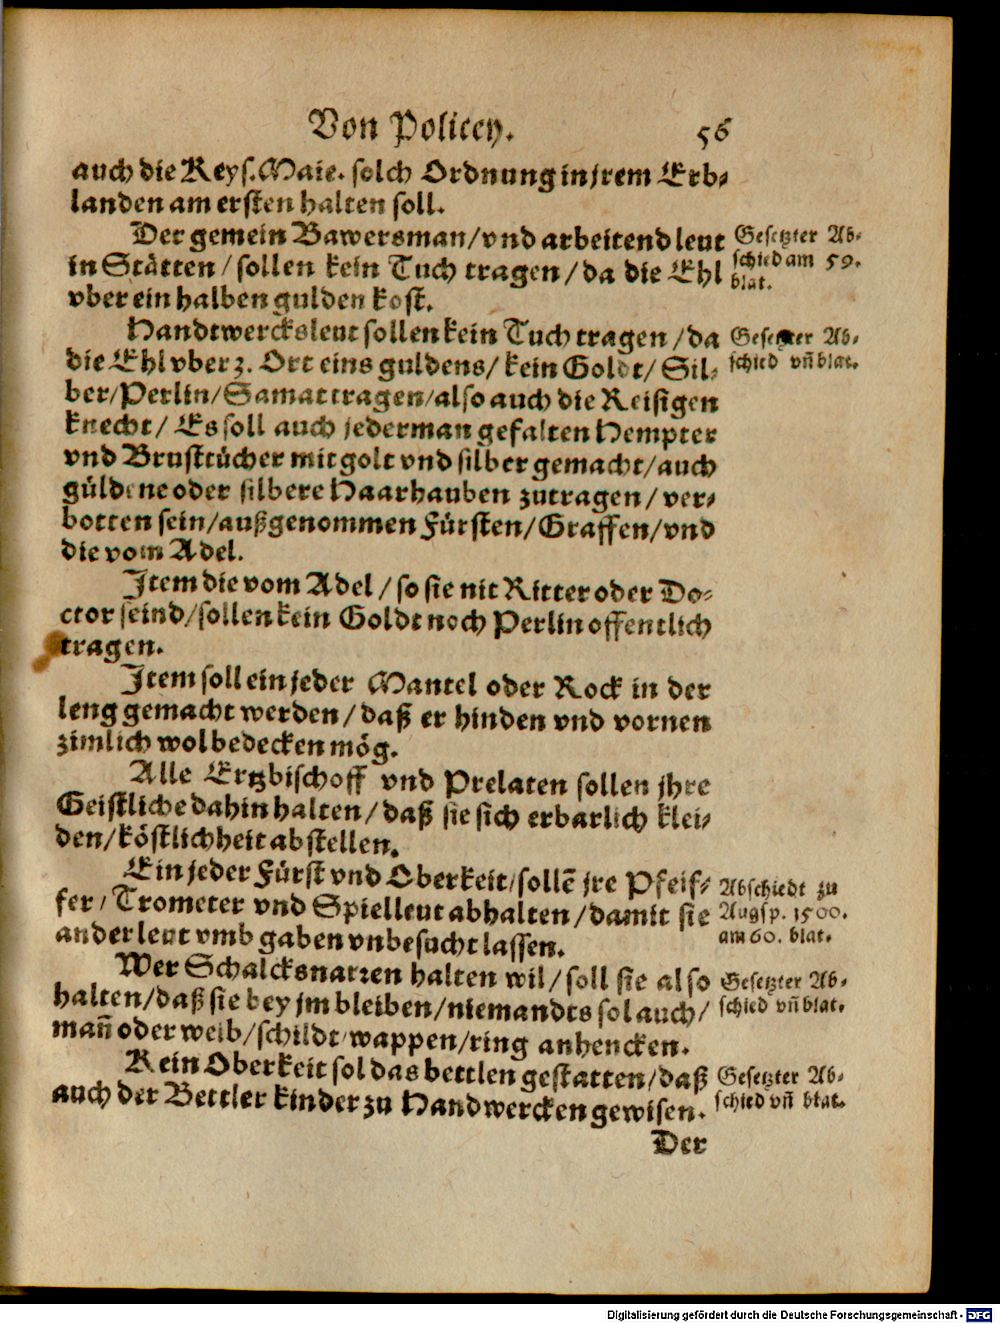 Von Policey. 56
auch die Keys. Maie. solch Ordnung in jrem Erb⸗
landen am ersten halten soll.
Der gemein Bawersman/vnd arbeitend leut
in Stätten/sollen kein Tuch tragen/da die Ehl
vber ein halben gulden kost.
Gesetzter Ab⸗
schied am 59.
blat.
Handtwercksleut sollen kein Tuch tragen/da
die Ehl vber 3. Ort eins guldens/kein Goldt/Sil⸗
ber/Perlin/Samat tragen/also auch die Reisigen
knecht/Es soll auch jederman gefalten Hempter
vnd Brusttücher mit golt vnd silber gemacht/auch
güldene oder silbere Haarhauben zutragen/ver⸗
botten sein/außgenommen Fürsten/Graffen/vnd
die vom Adel.
Gesetzter Ab⸗
schied vñ blat.
Item die vom Adel/so sie nit Ritter oder Do⸗
ctor seind/sollen kein Goldt noch Perlin offentlich
tragen.
Item soll ein jeder Mantel oder Rock in der
leng gemacht werden/daß er hinden vnd vornen
zimlich wol bedecken mög.
Alle Ertzbischoff vnd Prelaten sollen jhre
Geistliche dahin halten/daß sie sich erbarlich klei⸗
den/köstlichheit abstellen.
Ein jeder Fürst vnd Oberkeit/sollẽ jre Pfeif⸗
fer/Trometer vnd Spielleut abhalten/damit sie
ander leut vmb gaben vnbesucht lassen.
Abschiedt zu
Augsp. 1500.
am 60. blat.
Wer Schalcksnarren halten wil/soll sie also
halten/daß sie bey jm bleiben/niemandts sol auch/
mañ oder weib/schildt/wappen/ring anhencken.
Gesetzter Ab⸗
schied vñ blat.
Kein Oberkeit sol das bettlen gestatten/daß
auch der Bettler kinder zu Handwercken gewisen.
Gesetzter Ab⸗
schied vñ blat.
Der
Digitalisierung gefördert durch die Deutsche Forschungsgemeinschaft - DFG